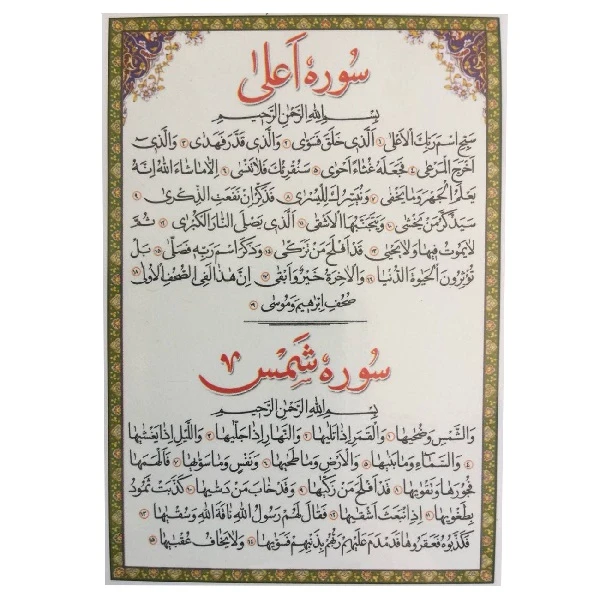 سوره اَعلیٰ
بِسْمِ اللهِ الرَّحْمٰنِ الرَّحیمِ
سَبِّحِ اسْمَ رَبِّكَ الْاَعْلَى ۱ اَلَّذی خَلَقَ فَسَوّٰى ۲ وَالَّذی قَدَّرَ فَهَدٰى ۳ وَالَّذی
اَخْرَجَ الْمَرْعٰى ۴ فَجَعَلَهُ غُثٰٓاءً اَحْوٰى ۵ سَنُقْرِئُكَ فَلا تَنْسٰٓى ۶ اِلّا ماشٰٓاءَ اللهُ اِنَّهُ
یَعْلَمُ الْجَهْرَ وَما یَخْفٰى ۷ وَنُیَسِّرُكَ لِلْیُسْرٰى ۸ فَذَكِّرْ اِنْ نَفَعَتِ الذِّكْرٰى ۹
سَیَذَّكَّرُ مَنْ یَخْشٰى ۱۰ وَیَتَجَنَّبُهَا الْاَشْقَى ۱۱ اَلَّذی یَصْلَى النّارَ الْكُبْرٰى ۱۲ ثُمَّ
لایَمُوتُ فیها وَلا یَحْیٰى ۱۳ قَدْ اَفْلَحَ مَنْ تَزَكّٰى ۱۴ وَذَكَرَ اسْمَ رَبِّهِ فَصَلّٰى ۱۵ بَلْ
تُؤْثِرُونَ الْحَیوةَ الدُّنْیا ۱۶ وَالْاٰخِرَةُ خَیْرٌ وَاَبْقٰى ۱۷ اِنَّ هٰذا لَفِی الصُّحُفِ الْاُولٰى ۱۸
صُحُفِ اِبْرٰهیمَ وَمُوسٰى ۱۹
سوره شَمس
بِسْمِ اللهِ الرَّحْمٰنِ الرَّحیمِ
وَالشَّمْسِ وَضُحٰیها ۱ وَالْقَمَرِ اِذا تَلٰیها ۲ وَالنَّهارِ اِذا جَلّٰیها ۳ وَاللَّیْلِ اِذا یَغْشٰیها
۴ وَالسَّمٰٓاءِ وَما بَنٰیها ۵ وَالْاَرْضِ وَما طَحٰیها ۶ وَنَفْسٍ وَما سَوّٰیها ۷ فَاَلْهَمَها
فُجُورَها وَتَقْوٰیها ۸ قَدْ اَفْلَحَ مَنْ زَكّٰیها ۹ وَقَدْ خابَ مَنْ دَسّٰیها ۱۰ كَذَّبَتْ ثَمُودُ
بِطَغْوٰیها ۱۱ اِذِ انْبَعَثَ اَشْقٰیها ۱۲ فَقالَ لَهُمْ رَسُولُ اللهِ ناقَةَ اللهِ وَسُقْیٰها ۱۳
فَكَذَّبُوهُ فَعَقَرُوها فَدَمْدَمَ عَلَیْهِمْ رَبُّهُمْ بِذَنْبِهِمْ فَسَوّٰیها ۱۴ وَلا یَخافُ عُقْبٰیها ۱۵